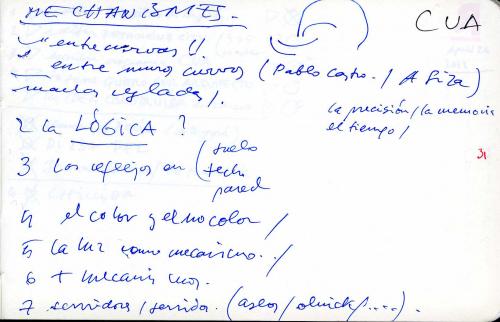 MECHANISMES.
CUA
entre curvas
entre muros curvos (Pablo Castro / A Siza)
regladas /.
la precisión / la memoria
el tiempo /
2 la LÓGICA ?
31
3 los reflejos en ( suelo
techo
pared
4 el color y el no color /
5 la luz como mecanismo. /
6 + mecanismos.
7 servidores / servidos. (aseos /